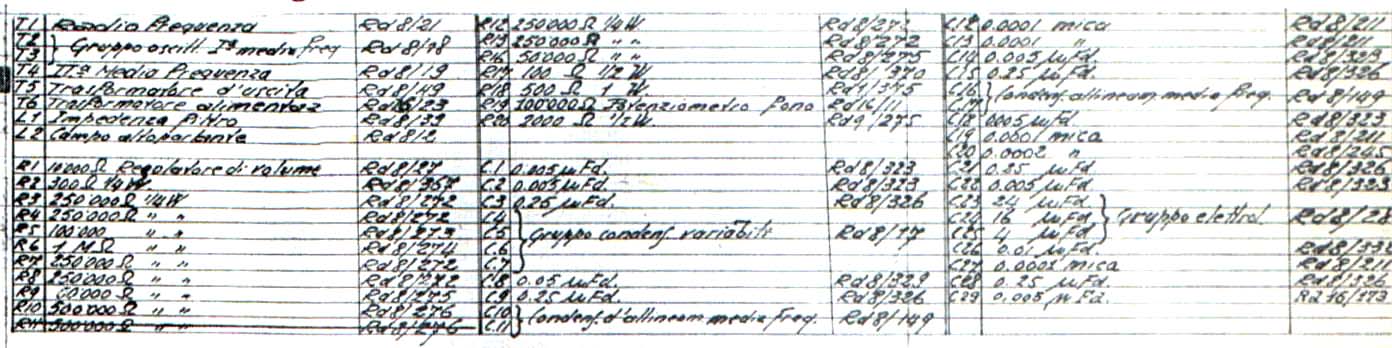 T1 Radio Frequenza Rd 8/21
T2 } Gruppo oscill. Iª media freq Rd 8/18
T3
T4 IIª Media Frequenza Rd 8/19
T5 Trasformatore d'uscita Rd 8/49
T6 Trasformatore alimentaz /23
L1 Impedenza Filtro Rd 8/39
L2 Campo altoparlante Rd 8/2
R1 10000 Ω Regolatore di volume Rd 8/27
R2 300 Ω 1/4 W Rd 8/367
R3 250000 Ω 1/4 W Rd 8/272
R4 250000 Ω " " Rd 8/272
R5 100000 " " Rd 8/273
R6 1 MΩ " " Rd 8/274
R7 250000 Ω " " Rd 8/272
R8 250000 Ω " " Rd 8/272
R9 50000 Ω " " Rd 8/275
R10 500000 Ω " " Rd 8/276
R11 500000 Ω " " Rd 8/276
R12 250000 Ω 1/4 W. Rd 8/272
R13 250000 Ω " " Rd 8/272
R16 50000 Ω " " Rd 8/275
R17 100 Ω 1/2 W. Rd 8/370
R18 500 Ω 1 W. Rd 1/375
R19 100000 Ω Potenziometro Fono Rd 16/11
R20 2000 Ω 1/2 W. Rd 9/275
C.1 0.005 µFd. Rd 8/323
C.2 0.005 µFd. Rd 8/323
C3 0.25 µFd. Rd 8/326
C4
C.5 } Gruppo condens. variabile Rd 8/77
C.6
C.7
C.8 0.05 µFd. Rd 8/329
C.9 0.25 µFd. Rd 8/326
C10 } Condens. d'allineam media freq. Rd 8/149
C.11
C12 0.0001 mica Rd 8/211
C13 0.0001 " 
C14 0.005 µFd. Rd 8/323
C15 0.25 µFd. Rd 8/326
C16 } Condens. allineam. media freq. Rd 8/149
C17
C18 0005 µfd. Rd 8/323
C19 0.0001 mica Rd 8/211
C20 0.0002 " Rd 8/245
C21 0.25 µFd. Rd 8/326
C22 0.005 µFd. Rd 8/323
C23 24 µFd
C24 16 µFd } Gruppo elettrol. Rd 8/28
C25 4 µFd
C26 0.01 µFd. Rd 8/332
C27 0.0001 mica Rd 8/211
C28 0.25 µFd. Rd 8/326
C29 0.005 µFd. Rd 16/173